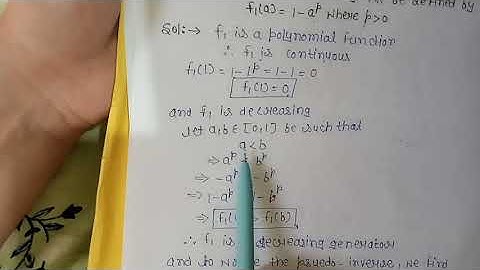 be defined by
f₁(a) = 1-aᵖ where p>0
Sol:- f₁ is a polynomial function
∴ f₁ is continuous
f₁(1) = 1-1ᵖ = 1-1 = 0
f₁(1) = 0
and f₁ is decreasing
Let a,b ∈ [0,1] be such that
a < b
⇒ aᵖ bᵖ
⇒ -aᵖ -bᵖ
⇒ 1-aᵖ 1-bᵖ
⇒ f₁( f₁(b)
∴ f₁ is decreasing generator
and to the psuedo-inverse, we find